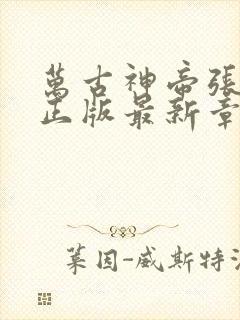 萬古神帝張
正版最新章
萊因-威斯特法